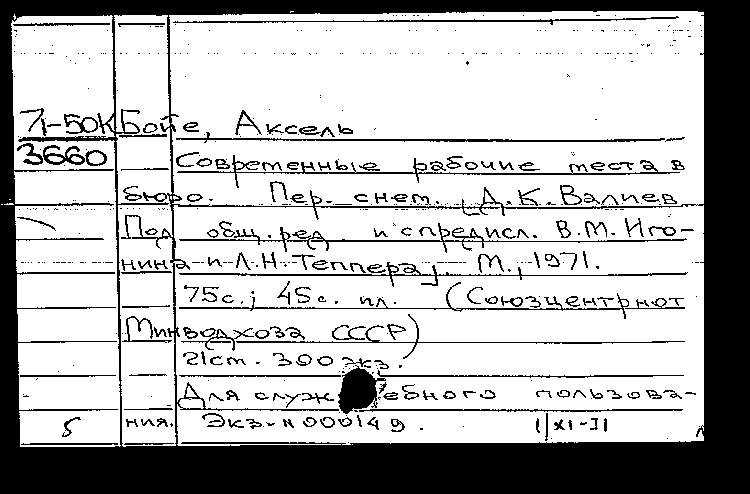 71-50К Бойе, Аксель
3660 Современные рабочие места в
бюро. Пер. с нем. [Д.К. Валиев
Под общ. ред. и с предисл. В.М. Иго-
нина и Л.Н. Теппера]. М., 1971.
75с.; 45с. ил. (Союзцентрнот
Минводхоза СССР)
21см. 300 экз.
Для служебного пользова-
5 ния. Экз. N 000149. 1|XI-II